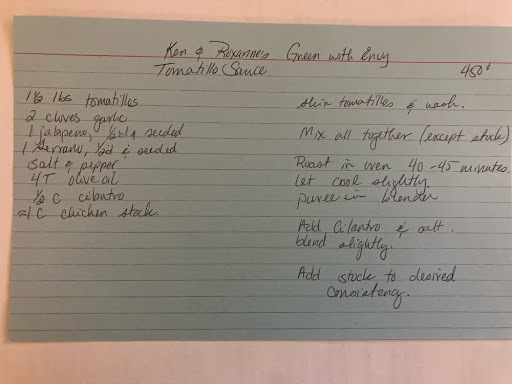 Ken & Roxanne's Green with Envy
Tomatillo Sauce
450°
1 1/2 lbs tomatillos
2 cloves garlic
1 jalapeno, 1/2d & seeded
1 serrano, 1/2d & seeded
salt & pepper
4T olive oil
1/2 C cilantro
≈1 C chicken stock
skin tomatillos & wash.
Mix all together (except stock)
Roast in oven 40-45 minutes.
let cool slightly
puree in blender
Add Cilantro & salt.
blend slightly.
Add stock to desired
consistency.